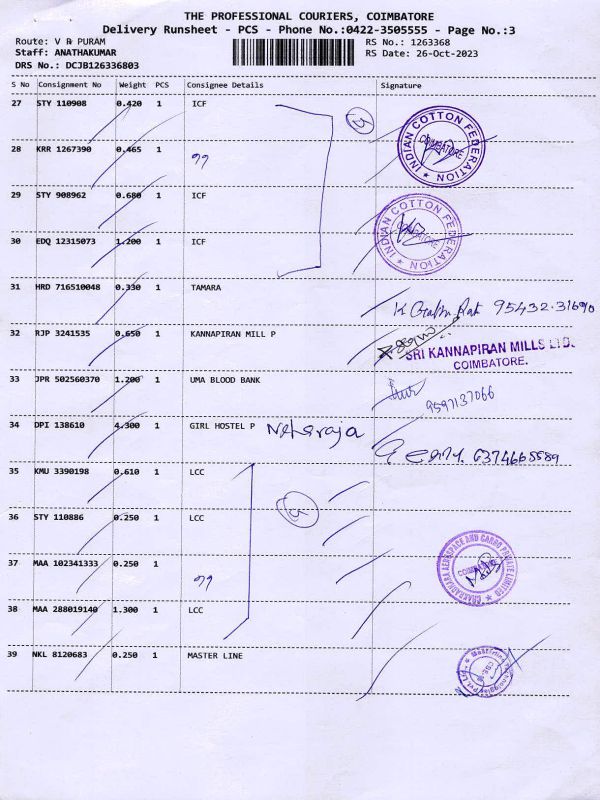 THE PROFESSIONAL COURIERS, COIMBATORE
Delivery Runsheet - PCS - Phone No.:0422-3505555 - Page No.:3
Route: V R PURAM
RS No.: 1263368
Staff: ANATHAKUMAR
RS Date: 26-Oct-2023
DRS No.: DCJB126336803
S No Consignment No Weight PCS Consignee Details Signature
27 STY 110908 0.420 1 ICF
28 KRR 1267390 0.465 1 ''
29 STY 908962 0.680 1 ICF
30 EDQ 12315073 1.200 1 ICF
INDIAN COTTON FEDERATION COIMBATORE
INDIAN COTTON FEDERATION COIMBATORE
31 HRD 716510048 0.330 1 TAMARA
95432.31690
32 RJP 3241535 0.650 1 KANNAPIRAN MILL P
SRI KANNAPIRAN MILLS LTD.
COIMBATORE.
33 JPR 502560370 1.200 1 UMA BLOOD BANK
9597137066
34 DPI 138610 4.300 1 GIRL HOSTEL P
6374665589
35 KMU 3390198 0.610 1 LCC
36 STY 110886 0.250 1 LCC
5
37 MAA 102341333 0.250 1 ''
38 MAA 288019140 1.300 1 LCC
39 NKL 8120683 0.250 1 MASTER LINE